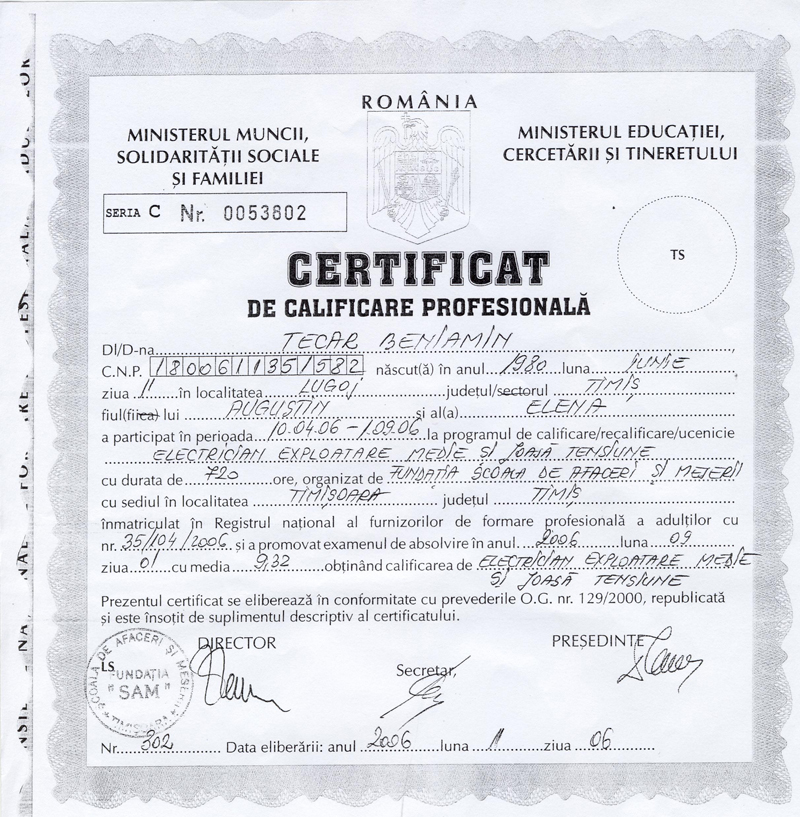 ROMÂNIA
MINISTERUL MUNCII,
SOLIDARITĂȚII SOCIALE
ȘI FAMILIEI
MINISTERUL EDUCAȚIEI,
CERCETĂRII ȘI TINERETULUI
SERIA C Nr. 0053802
TS
CERTIFICAT
DE CALIFICARE PROFESIONALĂ
Dl/D-na TECAR BENIAMIN
C.N.P. 1800611351582 născut(ă) în anul 1980 luna IUNIE
ziua 11 în localitatea LUGOJ județul/sectorul TIMIȘ
fiul(fiica) lui AUGUSTIN și al(a) ELENA
a participat în perioada 10.04.06 - 1.09.06 la programul de calificare/recalificare/ucenicie
ELECTRICIAN EXPLOATARE MEDIE SI JOASĂ TENSIUNE
cu durata de 720 ore, organizat de FUNDAȚIA ȘCOALA DE AFACERI ȘI MEȘERII
cu sediul în localitatea TIMIȘOARA județul TIMIȘ
înmatriculat în Registrul național al furnizorilor de formare profesională a adulților cu
nr. 35/104/2006 și a promovat examenul de absolvire în anul 2006 luna 09
ziua 01 cu media 9,32 obținând calificarea de ELECTRICIAN EXPLOATARE MEDIE
SI JOASĂ TENSIUNE
Prezentul certificat se eliberează în conformitate cu prevederile O.G. nr. 129/2000, republicată
și este însoțit de suplimentul descriptiv al certificatului.
DIRECTOR
PREȘEDINTE
LS
Secretar,
ȘCOALA DE AFACERI ȘI MESERII
FUNDAȚIA
"SAM"
TIMIȘOARA
Nr. 302 Data eliberării: anul 2006 luna 11 ziua 06